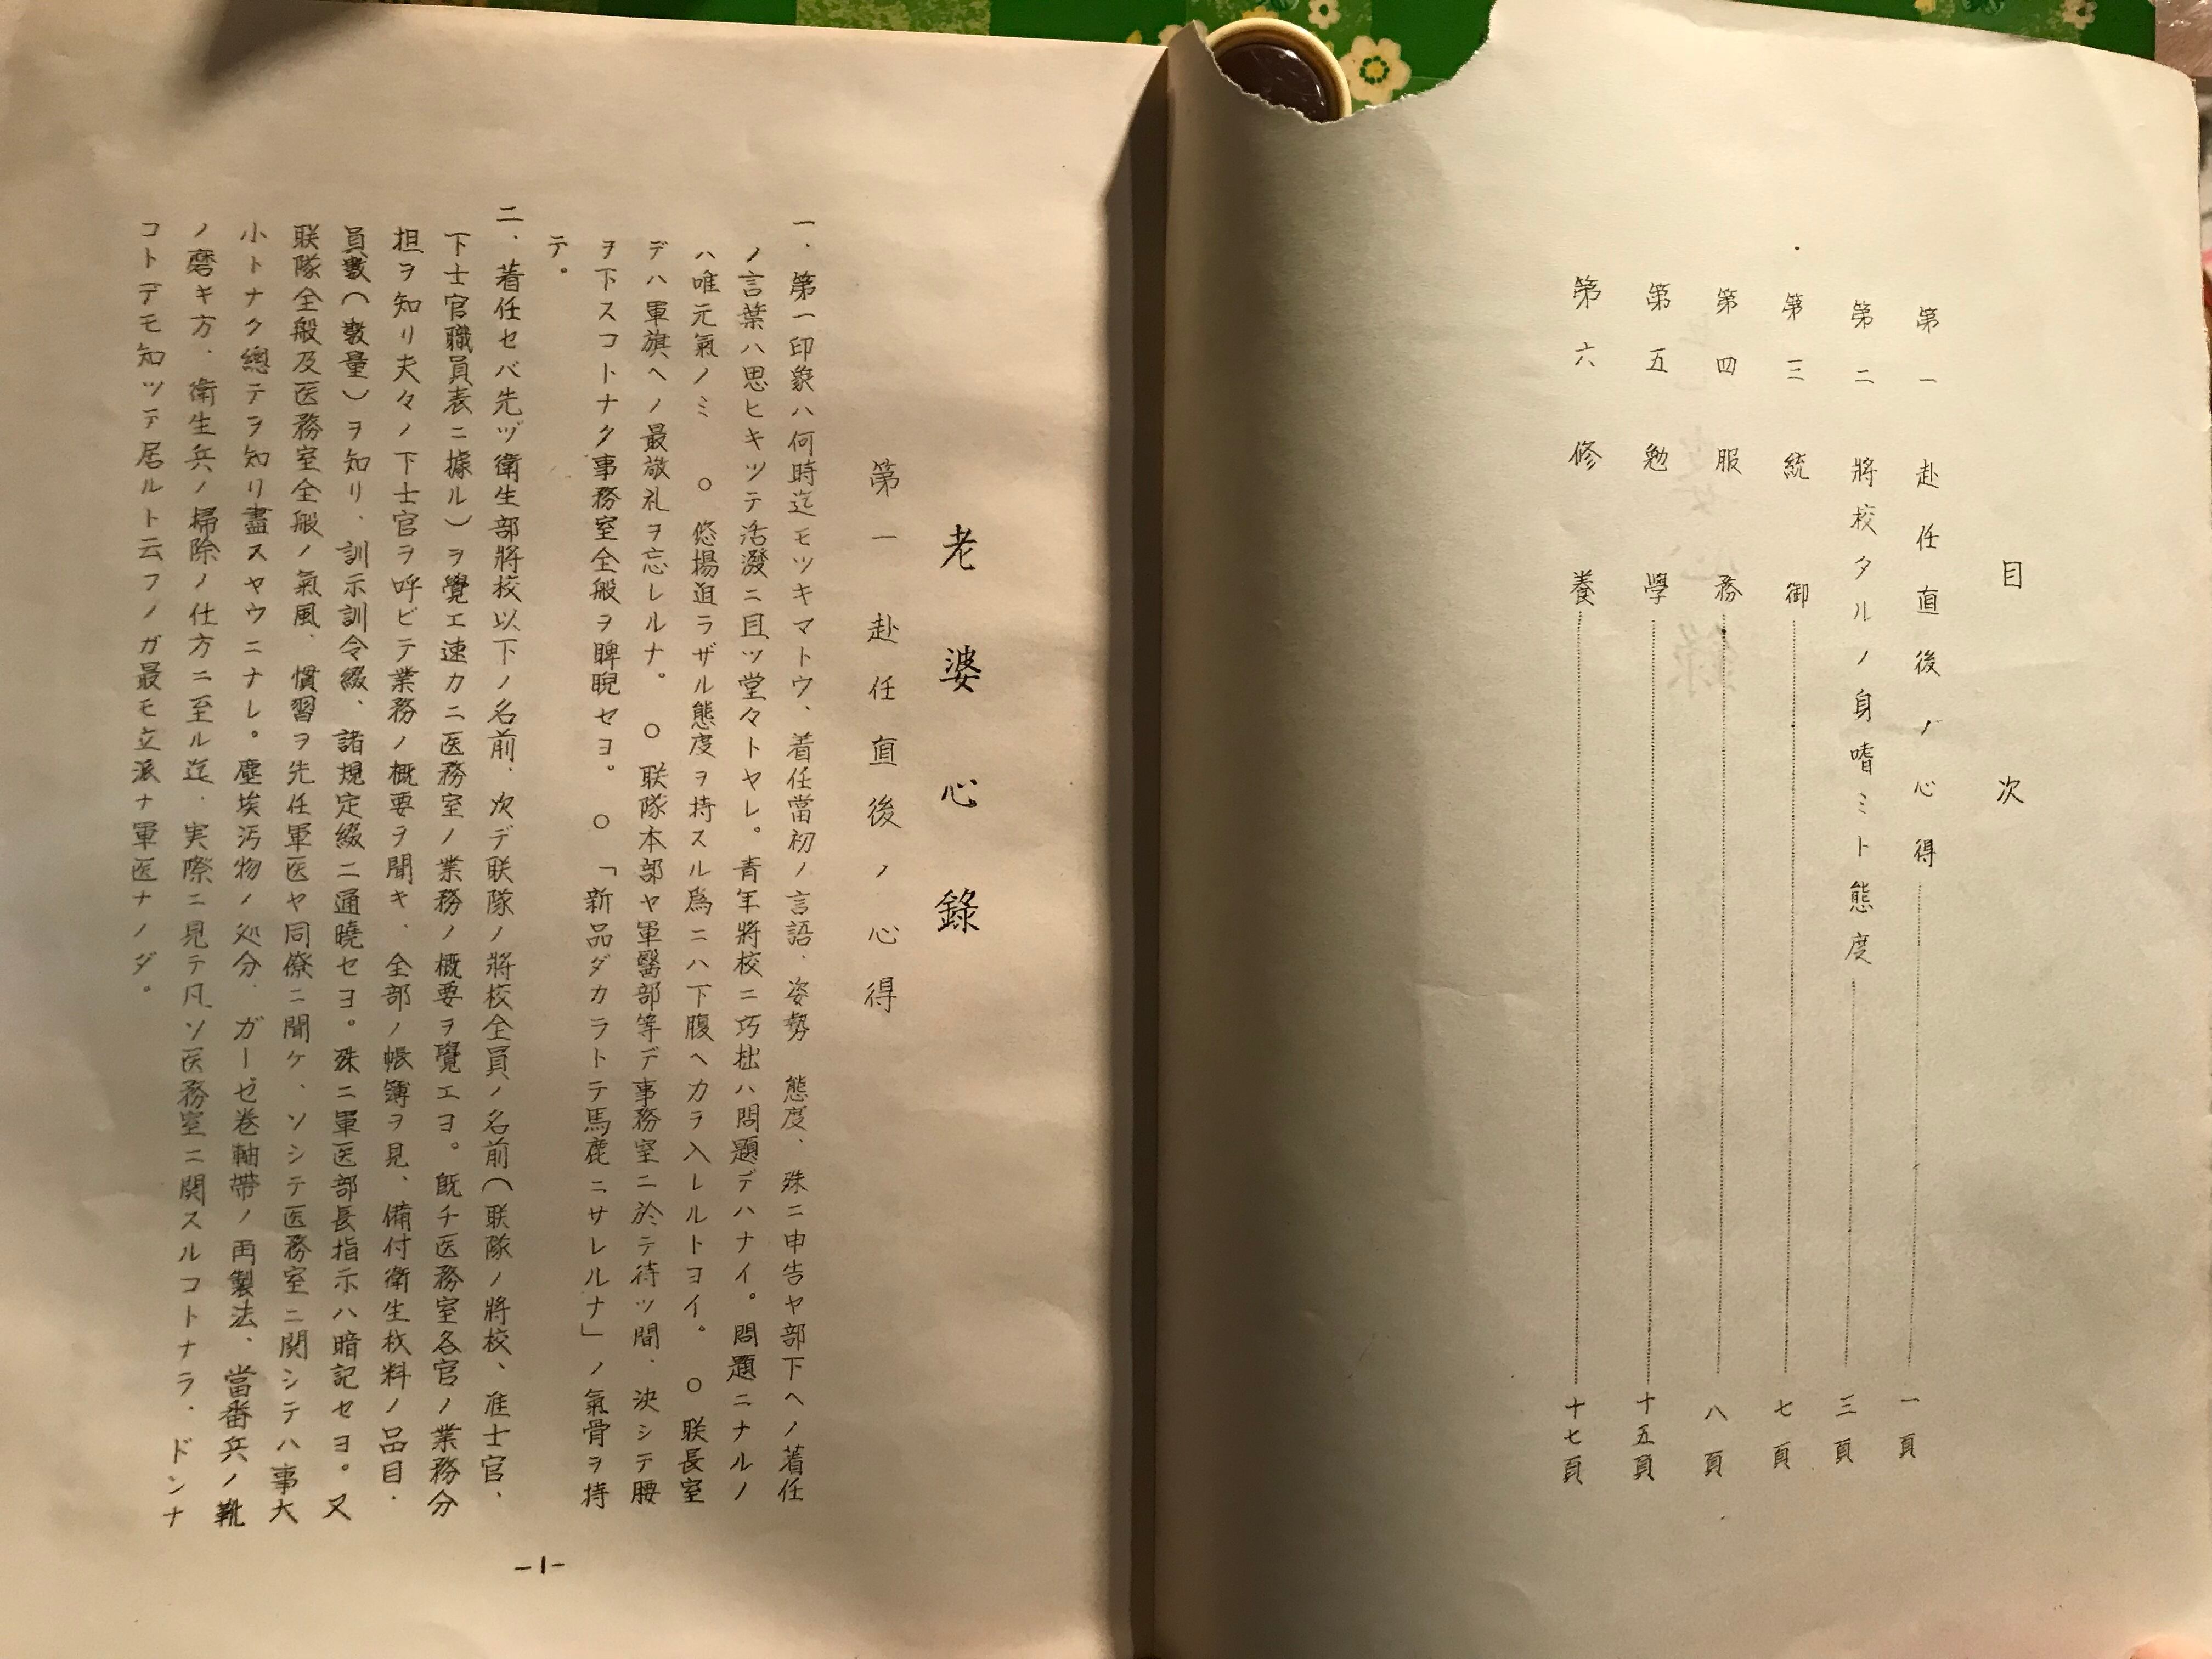 目次
第一 赴任直後ノ心得 一頁
第二 將校タルノ身嗜ミト態度 三頁
第三 統御 七頁
第四 服務 八頁
第五 勉學 十五頁
第六 修養 十七頁
老婆心錄
第一 赴任直後ノ心得
一、第一印象ハ何時迄モツキマトウ、着任當初ノ言語、姿勢 態度、殊ニ申告ヤ部下ヘノ着任
ノ言葉ハ思ヒキツテ活潑ニ且ツ堂々トヤレ。靑年將校ニ巧拙ハ問題デハナイ。問題ニナルノ
ハ唯元氣ノミ ○ 悠揚迫ラザル態度ヲ持スル爲ニハ下腹ヘカヲ入レルトヨイ。 ○ 联長室
デハ軍旗ヘノ最敬礼ヲ忘レルナ。 ○ 联隊本部ヤ軍醫部等デ事務室ニ於テ待ツ間、決シテ腰
ヲ下スコトナク事務室全般ヲ睥睨セヨ。 ○ 「新品ダカラトテ馬鹿ニサレルナ」ノ氣骨ヲ持
テ。
二、着任セバ先ヅ衛生部將校以下ノ名前、次デ联隊ノ將校全員ノ名前(联隊ノ將校、准士官、
下士官職員表ニ據ル)ヲ覺エ速カニ医務室ノ業務ノ概要ヲ覺エヨ。旣チ医務室各官ノ業務分
担ヲ知リ夫々ノ下士官ヲ呼ビテ業務ノ概要ヲ聞キ、全部ノ帳簿ヲ見、備付衛生材料ノ品目・
員數(數量)ヲ知リ、訓示訓令綴、諸規定綴ニ通曉セヨ。殊ニ軍医部長指示ハ暗記セヨ。又
联隊全般及医務室全般ノ氣風、慣習ヲ先任軍医ヤ同僚ニ聞ケ、ソシテ医務室ニ関シテハ事大
小トナク總テヲ知リ盡スヤウニナレ。塵埃汚物ノ処分、ガーゼ巻軸帶ノ再製法、當番兵ノ靴
ノ磨キ方、衛生兵ノ掃除ノ仕方ニ至ル迄、実際ニ見テ凡ソ医務室ニ関スルコトナラ、ドンナ
コトデモ知ツテ居ルト云フノガ最モ立派ナ軍医ナノダ。
-1-